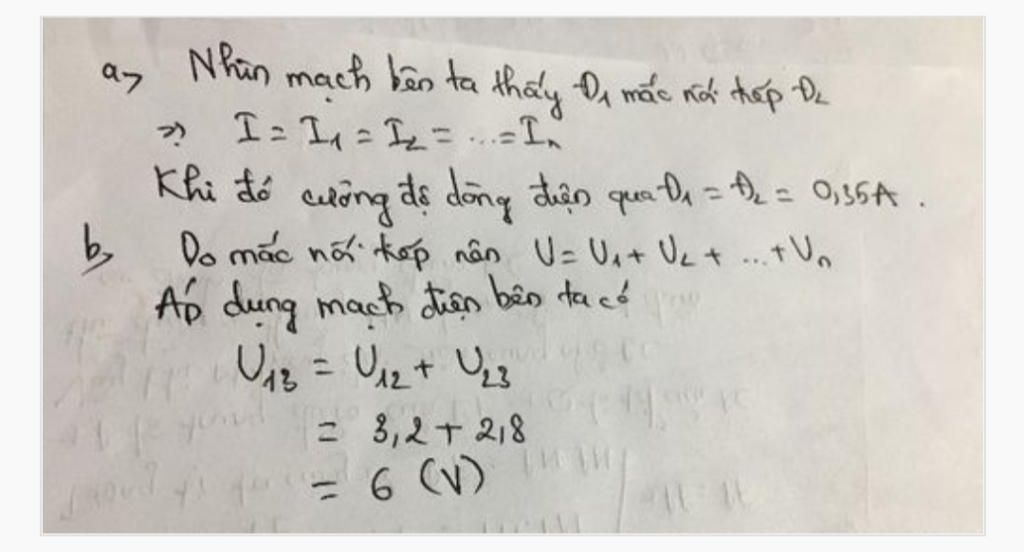 a, Nhìn mạch bên ta thấy Đ1 mắc nối tiếp Đ2
=> I = I1 = I2 = ... = In
Khi đó cường độ dòng điện qua Đ1 = Đ2 = 0,35A.
b, Do mắc nối tiếp nên U = U1 + U2 + ... + Un
Áp dụng mạch điện bên ta có
U13 = U12 + U23
= 3,2 + 2,8
= 6 (V)